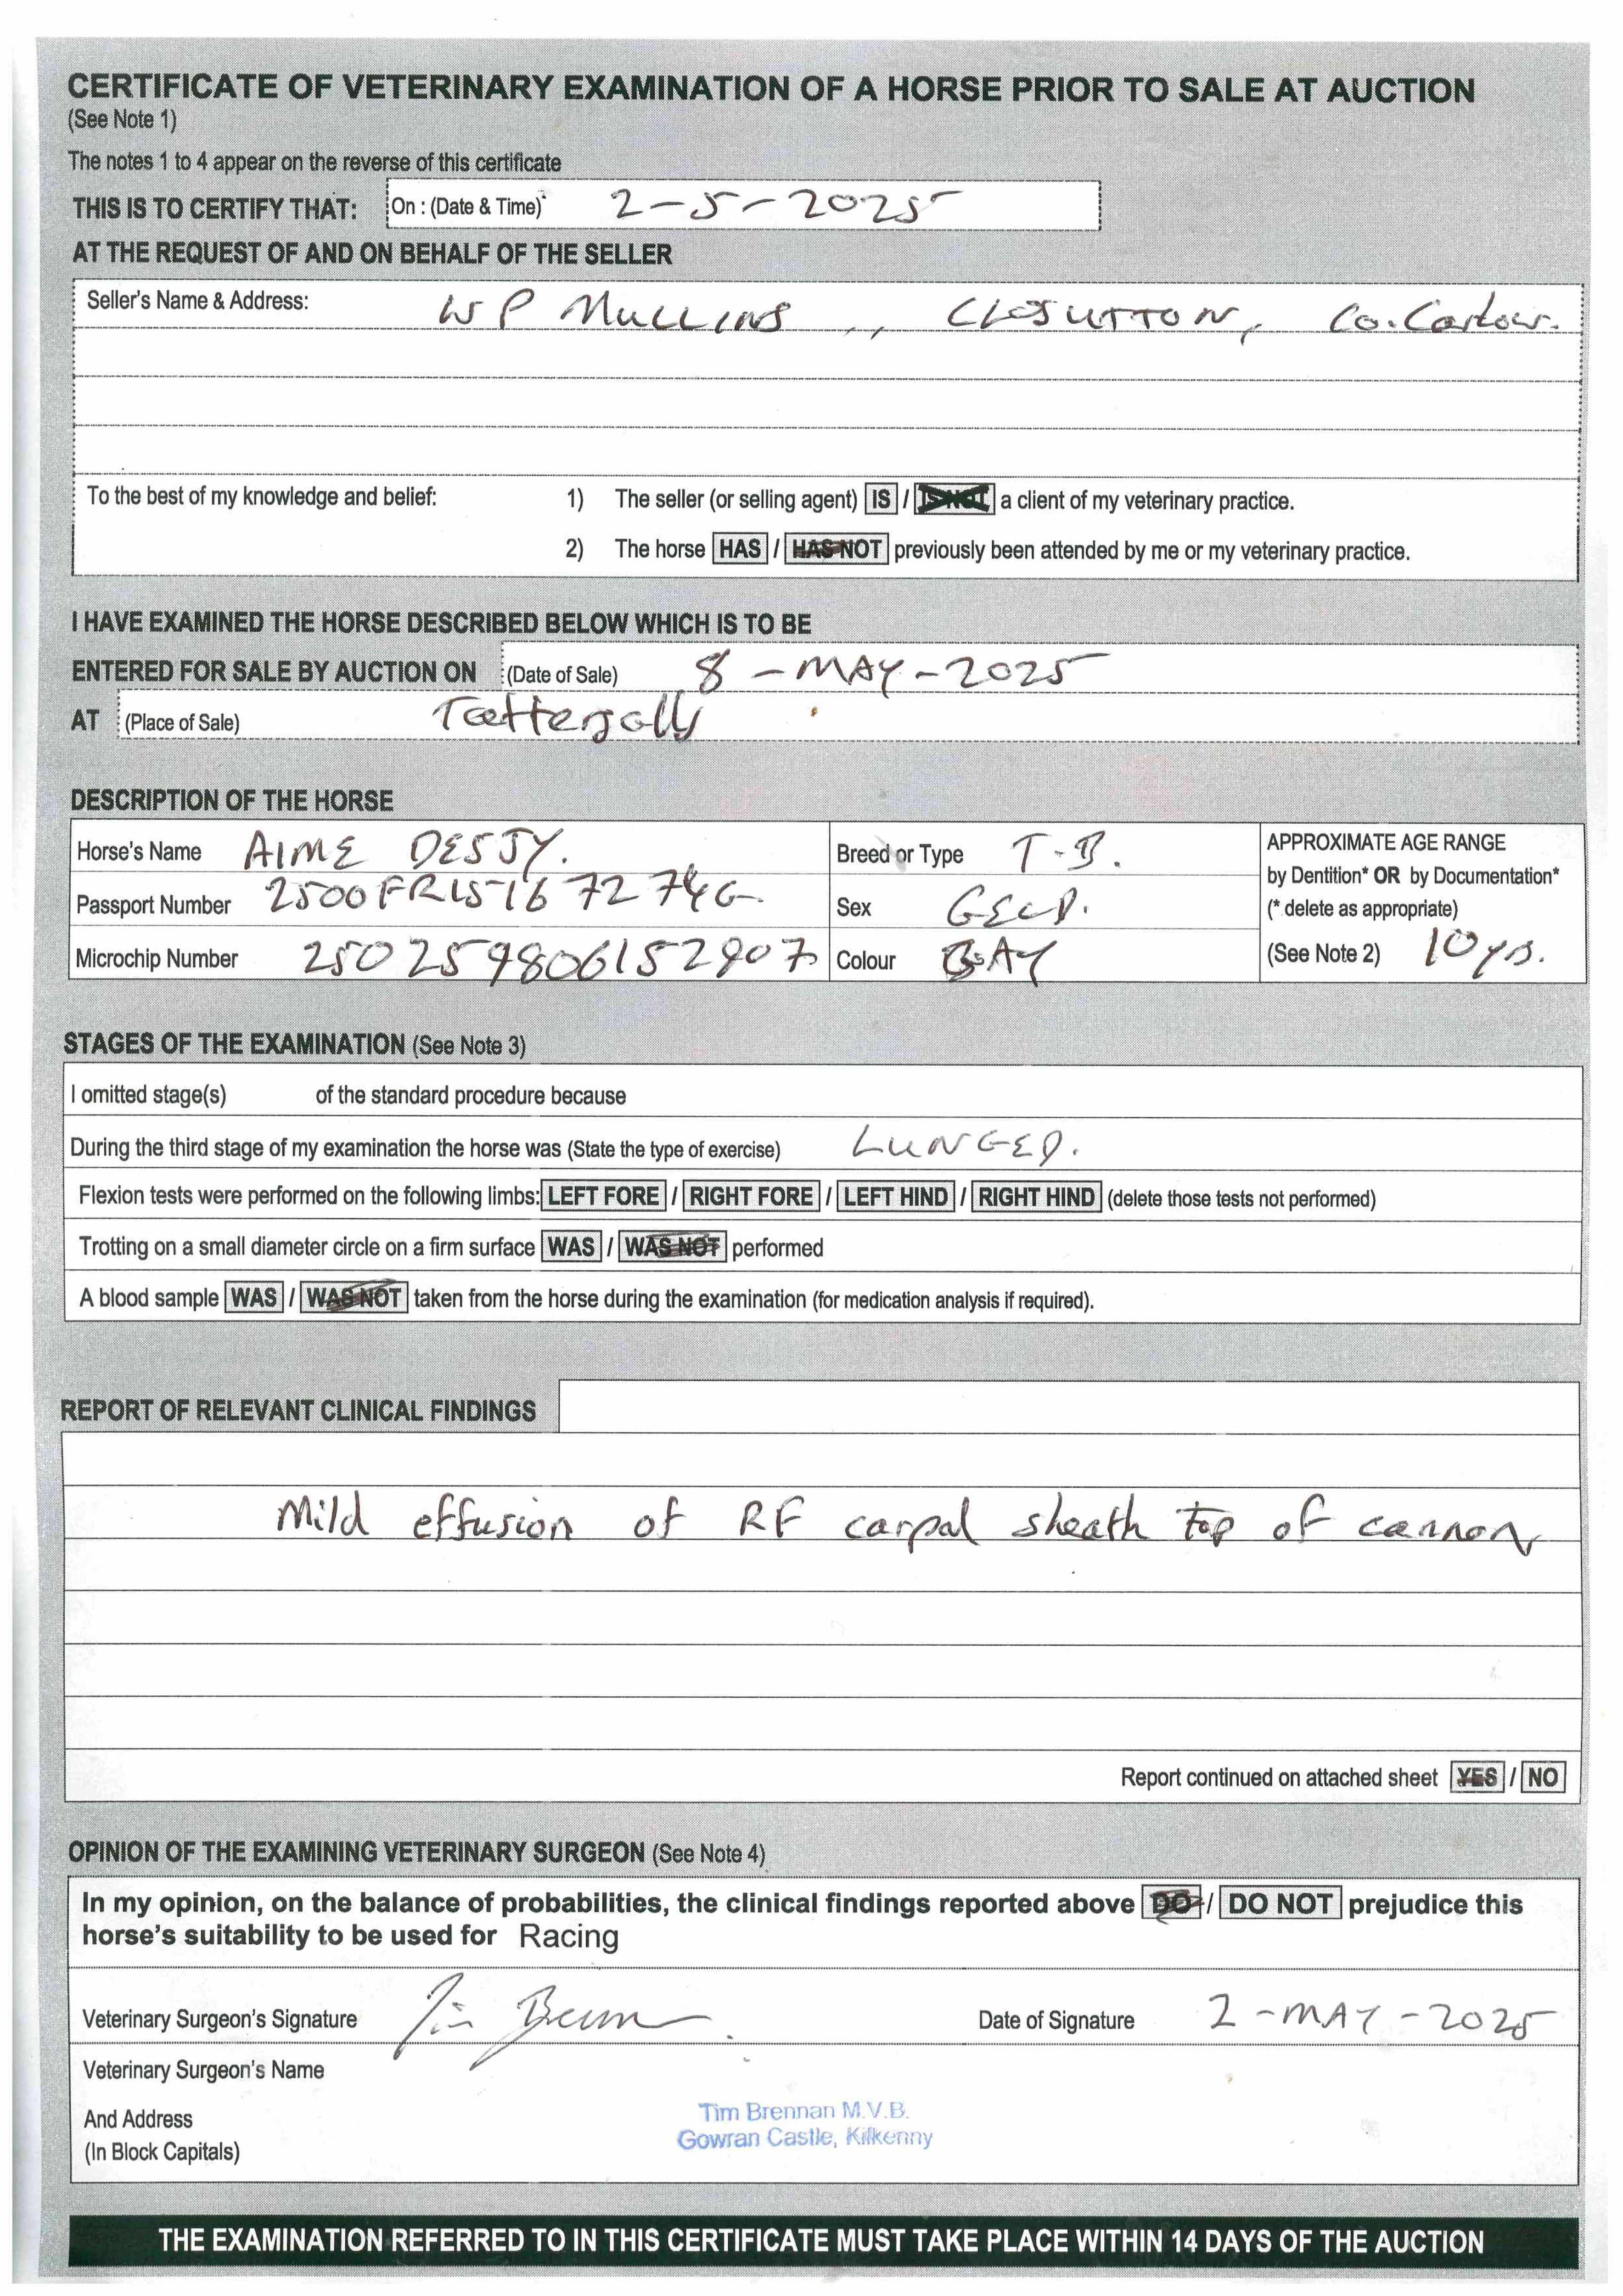 CERTIFICATE OF VETERINARY EXAMINATION OF A HORSE PRIOR TO SALE AT AUCTION
(See Note 1)
The notes 1 to 4 appear on the reverse of this certificate
THIS IS TO CERTIFY THAT: On : (Date & Time) 2-5-2025
AT THE REQUEST OF AND ON BEHALF OF THE SELLER
Seller's Name & Address: W P MULLINS ,, CLOSUTTON, Co. Carlow.
To the best of my knowledge and belief: 1) The seller (or selling agent) IS / IS NOT a client of my veterinary practice.
2) The horse HAS / HAS NOT previously been attended by me or my veterinary practice.
I HAVE EXAMINED THE HORSE DESCRIBED BELOW WHICH IS TO BE
ENTERED FOR SALE BY AUCTION ON (Date of Sale) 8 - MAY - 2025
AT (Place of Sale) Tattersalls
DESCRIPTION OF THE HORSE
Horse's Name AIME DESJY. Breed or Type T-B. APPROXIMATE AGE RANGE
by Dentition* OR by Documentation*
Passport Number Sex GELD. (* delete as appropriate)
Microchip Number 250259806152907 Colour BAY (See Note 2) 10yo.
STAGES OF THE EXAMINATION (See Note 3)
I omitted stage(s) of the standard procedure because
During the third stage of my examination the horse was (State the type of exercise) LUNGED.
Flexion tests were performed on the following limbs: LEFT FORE / RIGHT FORE / LEFT HIND / RIGHT HIND (delete those tests not performed)
Trotting on a small diameter circle on a firm surface WAS / WAS NOT performed
A blood sample WAS / WAS NOT taken from the horse during the examination (for medication analysis if required).
REPORT OF RELEVANT CLINICAL FINDINGS
Mild effusion of RF carpal sheath top of cannon
Report continued on attached sheet YES / NO
OPINION OF THE EXAMINING VETERINARY SURGEON (See Note 4)
In my opinion, on the balance of probabilities, the clinical findings reported above DO / DO NOT prejudice this
horse's suitability to be used for Racing
Veterinary Surgeon's Signature Tim Brennan Date of Signature 2 - MAY - 2025
Veterinary Surgeon's Name
And Address
(In Block Capitals)
Tim Brennan M.V.B.
Gowran Castle, Kilkenny
THE EXAMINATION REFERRED TO IN THIS CERTIFICATE MUST TAKE PLACE WITHIN 14 DAYS OF THE AUCTION